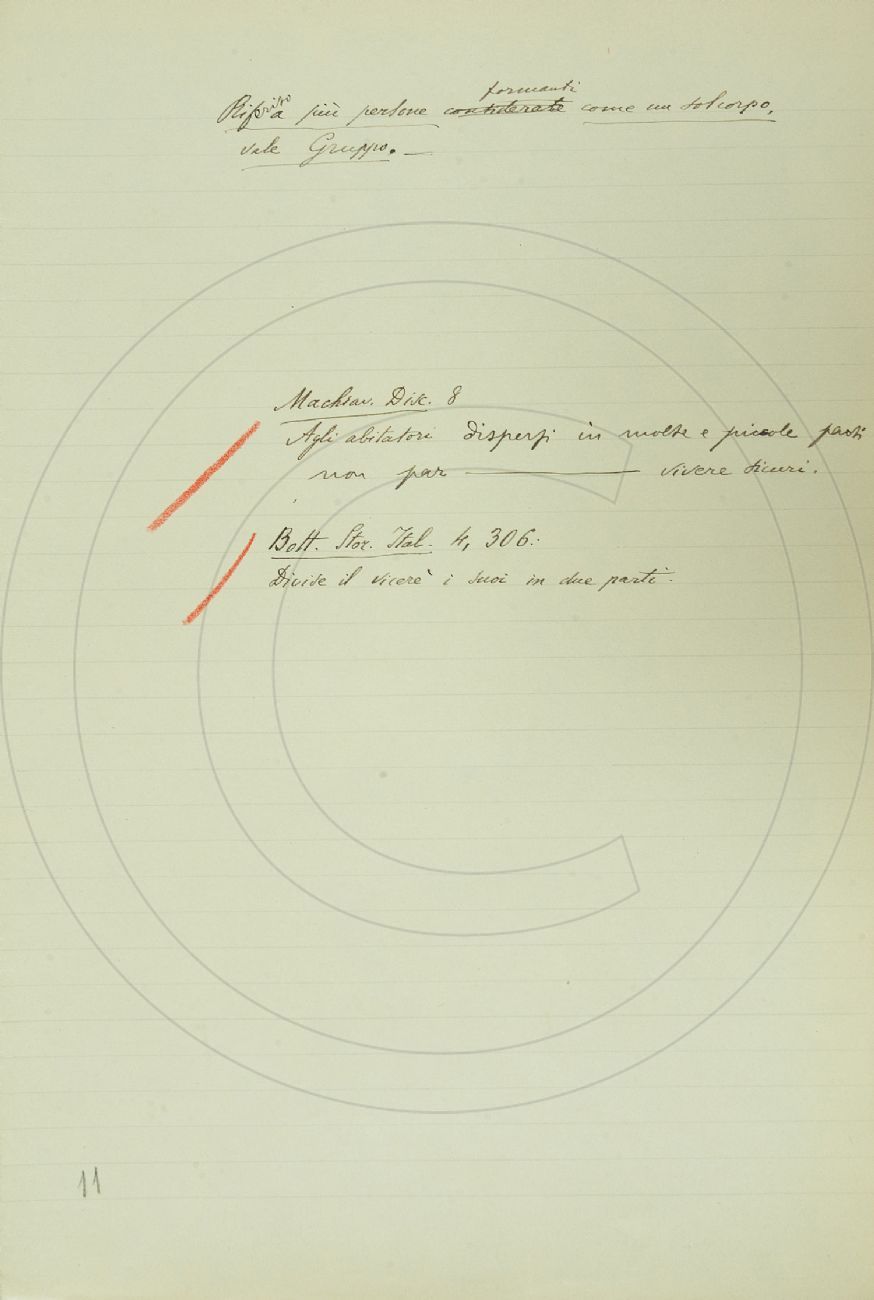 formanti
Rif.rito a più persone considerate come un sol corpo,
vale Gruppo. —
Machiav. Disc. 8
Agli abitatori dispersi in molte e piccole parti
non par ——— vivere sicuri.
Bott. Stor. Ital. 4, 306.
Divise il vicerè i suoi in due parti.
11